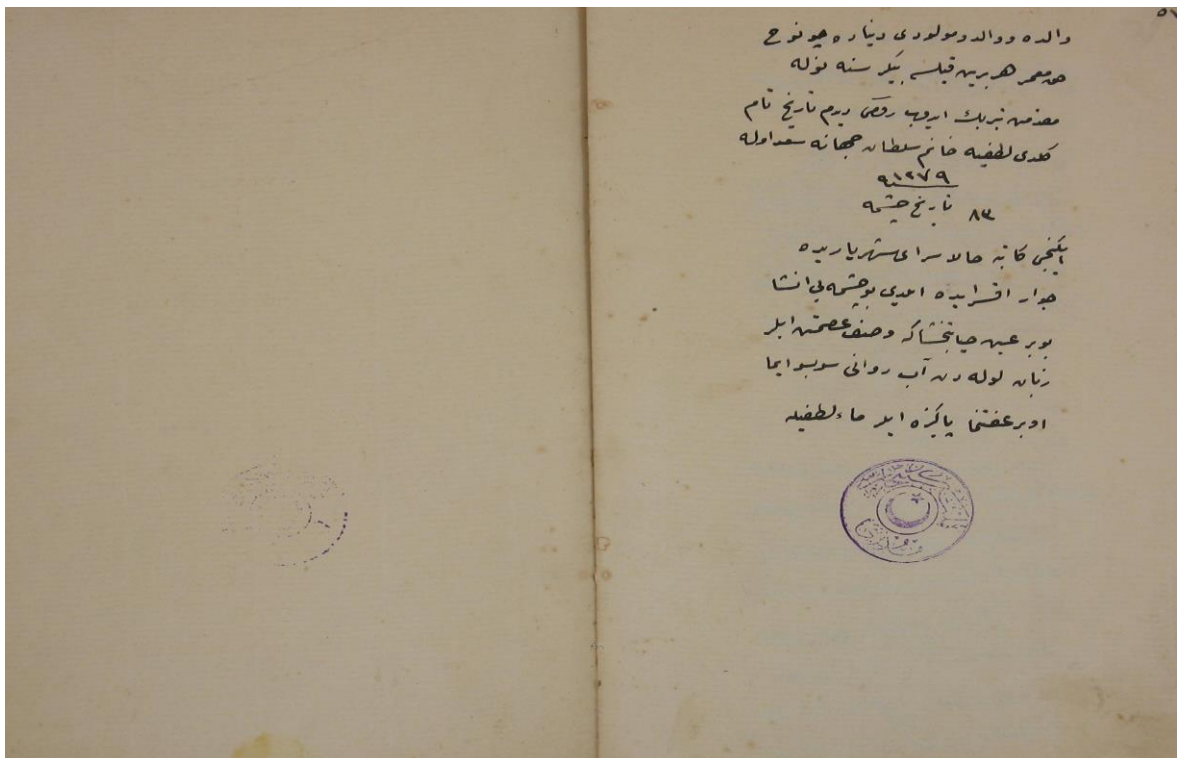 والده و والد و مولودی دنیاده چو نوح
حق معمر هر برین قیلسه بیكر سنه نوله
مقدمن تبریك ایدوب رفعی دیدم تاریخ تام
كلدی لطفیه خانم سلطان جهانه سعد اوله
١٢٧٩
٨٣ تاریخ چشمه
ایكنجی كاتبه حالا سرای شهریاریده
جوار اقسرایده ایلدی بو چشمه یی انشا
بو بر عین حیاتبخشا كه وصف عصمتن ایلر
زبان لوله دن آب روانی سوبسو ایما
او بر عفتنما پاكیزه ایلر ماء لطفیله